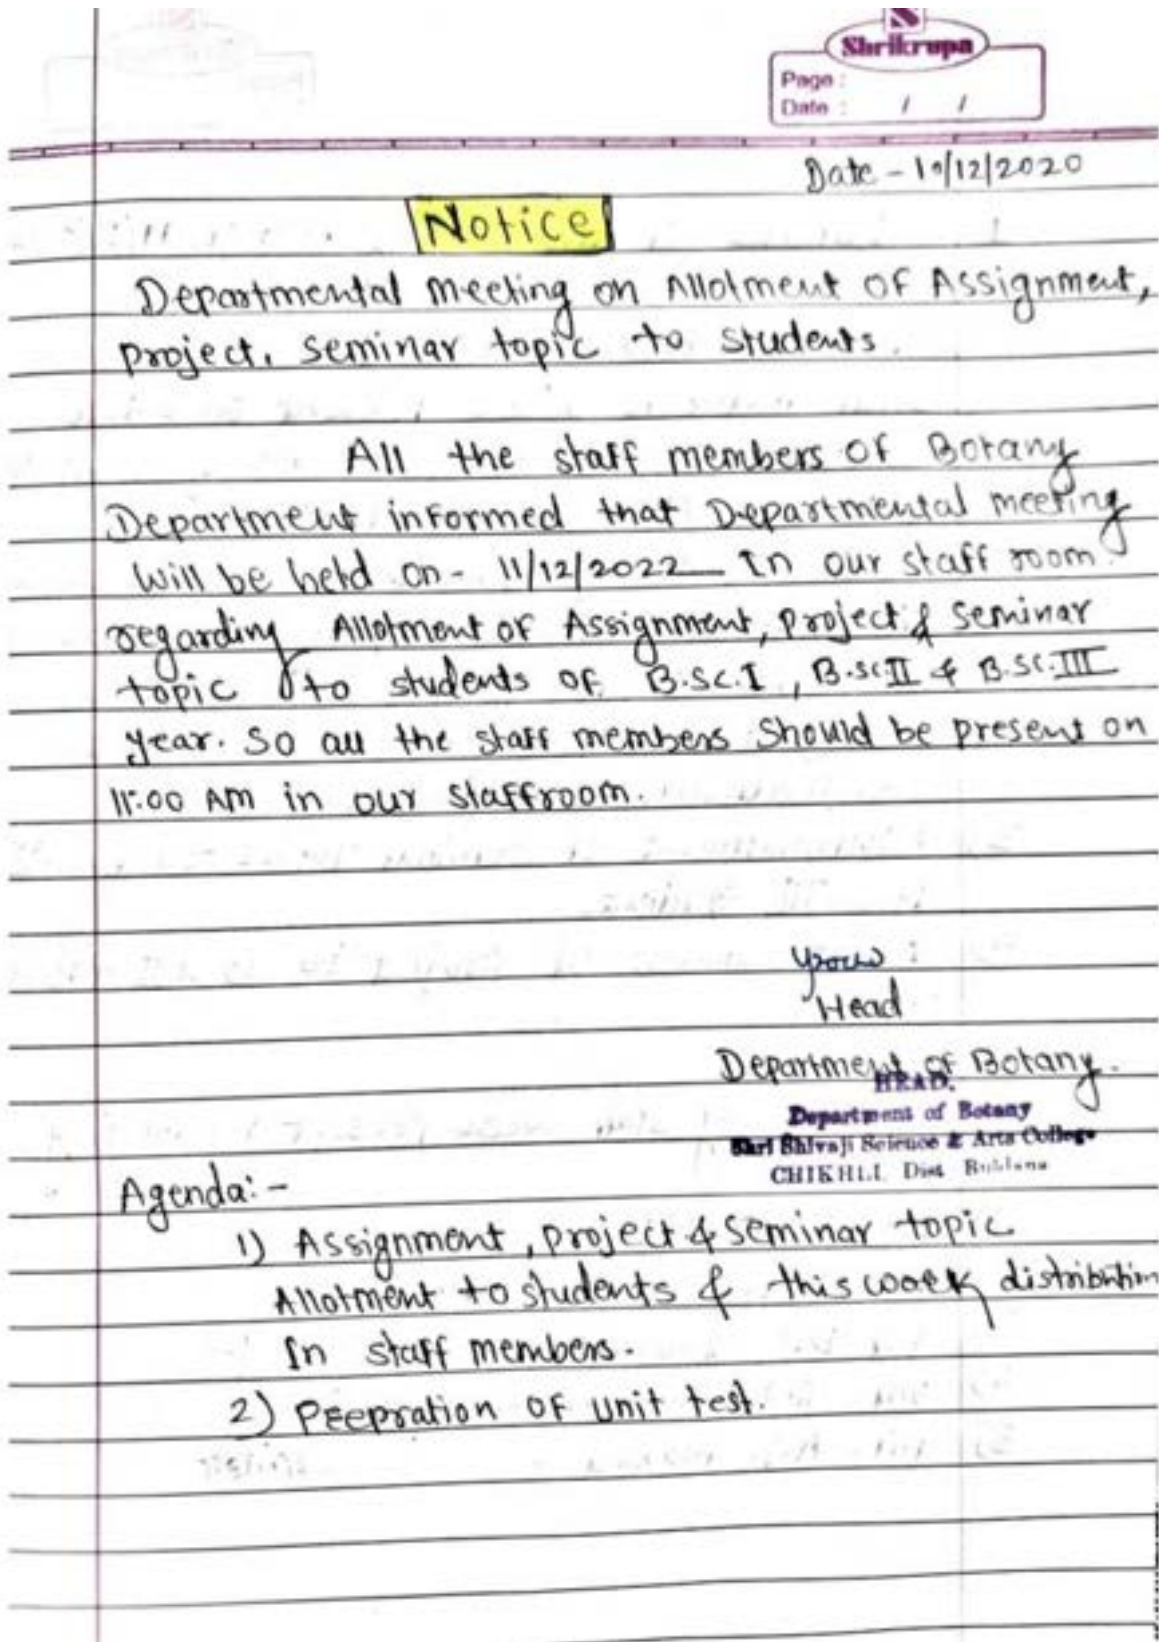 Shrikrupa
Page :
Date : / /
Date - 10/12/2020
Notice
Departmental meeting on Allotment of Assignment,
project, seminar topic to students.
All the staff members of Botany
Department informed that Departmental meeting
will be held on - 11/12/2022 In our staff room
regarding Allotment of Assignment, project & seminar
topic to students of B.Sc.I, B.Sc II & B.Sc.III
year. So all the staff members should be present on
11:00 AM in our staffroom.
Head
Department of Botany.
HEAD.
Department of Botany
Shri Shivaji Science & Arts College
CHIKHLI. Dist
Agenda:-
1) Assignment, project & seminar topic
Allotment to students & this work distribution
In staff members.
2) Peepration of unit test.